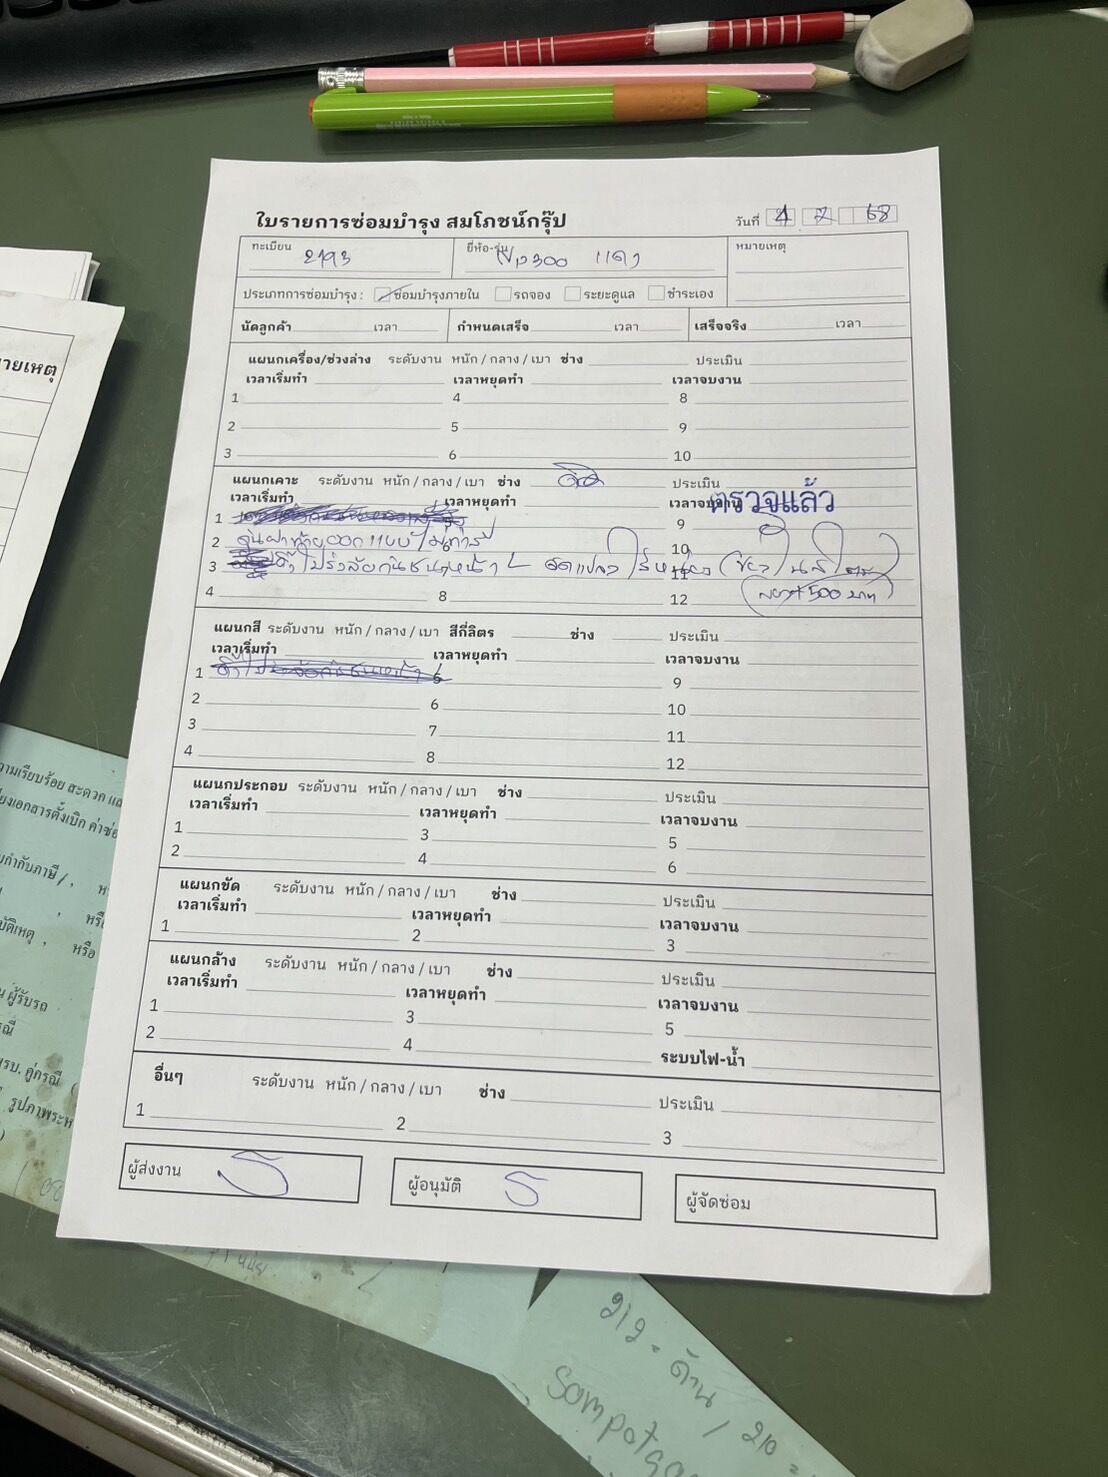 ใบรายการซ่อมบำรุง สมโภชน์กรุ๊ป
วันที่ 4 7 68
ทะเบียน 2193 ยี่ห้อ-รุ่น NP300 แดง หมายเหตุ
ประเภทการซ่อมบำรุง : ซ่อมบำรุงภายใน รถจอง ระยะดูแล ชำระเอง
นัดลูกค้า เวลา กำหนดเสร็จ เวลา เสร็จจริง เวลา
แผนกเครื่อง/ช่วงล่าง ระดับงาน หนัก / กลาง / เบา ช่าง ประเมิน
เวลาเริ่มทำ เวลาหยุดทำ เวลาจบงาน
1 4 8
2 5 9
3 6 10
แผนกเคาะ ระดับงาน หนัก / กลาง / เบา ช่าง ประเมิน
เวลาเริ่มทำ เวลาหยุดทำ เวลาจบงาน
ตรวจแล้ว
1 9
2 10
3 กันชนหน้า ดัดแปลง 11
4 8 12 500 บาท
แผนกสี ระดับงาน หนัก / กลาง / เบา สีกี่ลิตร ช่าง ประเมิน
เวลาเริ่มทำ เวลาหยุดทำ เวลาจบงาน
1 9
2 6 10
3 7 11
4 8 12
แผนกประกอบ ระดับงาน หนัก / กลาง / เบา ช่าง ประเมิน
เวลาเริ่มทำ เวลาหยุดทำ เวลาจบงาน
1 3 5
2 4 6
แผนกขัด ระดับงาน หนัก / กลาง / เบา ช่าง ประเมิน
เวลาเริ่มทำ เวลาหยุดทำ เวลาจบงาน
1 2 3
แผนกล้าง ระดับงาน หนัก / กลาง / เบา ช่าง ประเมิน
เวลาเริ่มทำ เวลาหยุดทำ เวลาจบงาน
1 3 5
2 4 ระบบไฟ-น้ำ
อื่นๆ ระดับงาน หนัก / กลาง / เบา ช่าง ประเมิน
1 2 3
ผู้ส่งงาน ผู้อนุมัติ ผู้จัดซ่อม
212 = ด้าน / 210 =